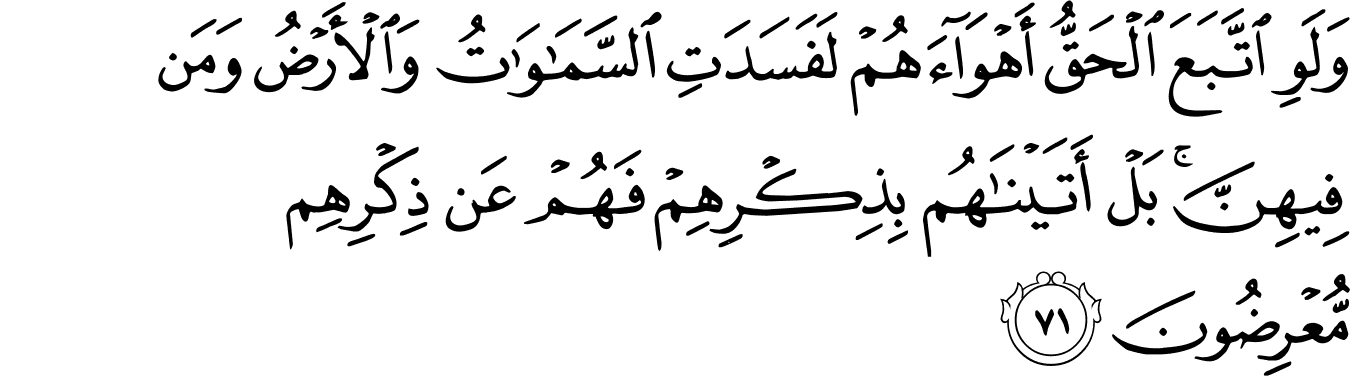 وَلَوِ ٱتَّبَعَ ٱلْحَقُّ أَهْوَآءَهُمْ لَفَسَدَتِ ٱلسَّمَٰوَٰتُ وَٱلْأَرْضُ وَمَن
فِيهِنَّ ۚ بَلْ أَتَيْنَٰهُم بِذِكْرِهِمْ فَهُمْ عَن ذِكْرِهِم
مُّعْرِضُونَ ٧١